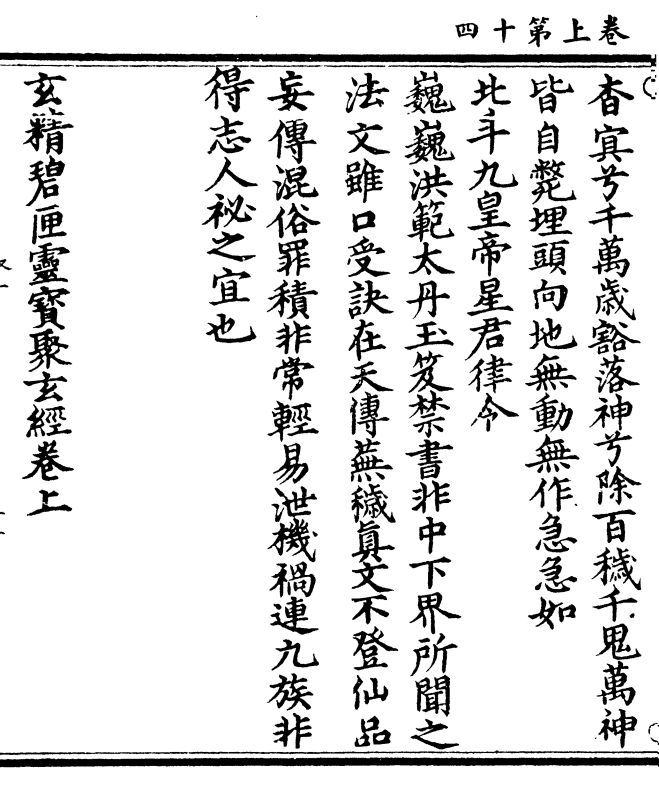 卷上第十四
杳冥兮千萬歲豁落神兮除百穢千鬼萬神
皆自斃埋頭向地無動無作急急如
北斗九皇帝星君律令
巍巍洪範太丹玉笈禁書非中下界所聞之
法文雖口受訣在天傳蕪穢真文不登仙品
妄傳混俗罪積非常輕易泄機禍連九族非
得志人祕之宜也
玄精碧匣靈寶聚玄經卷上